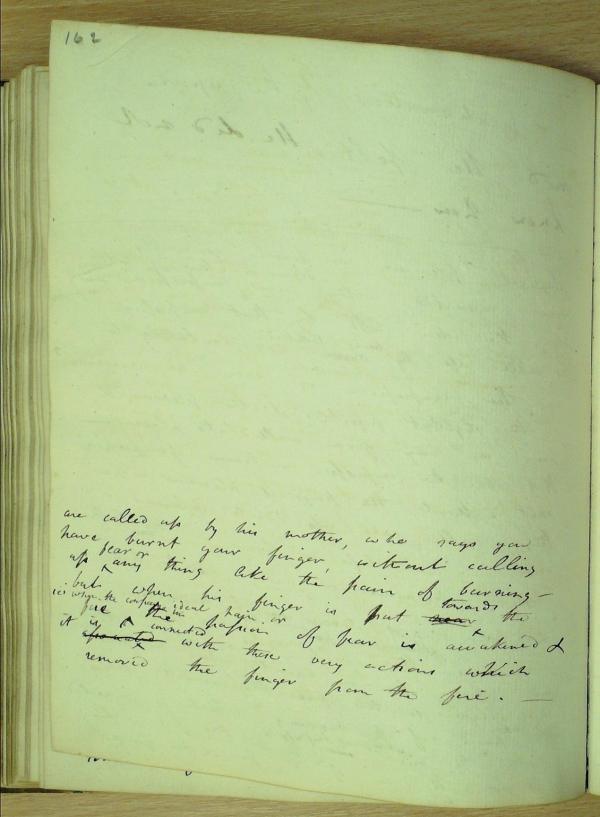 162
are called up by his mother, who says you
have burnt your finger, without calling
up fear or any thing like the pain of burning —
but when his finger is put near towards the
fire the ideal pain or passion of fear is awakened &
it is connected with those very actions which
removed the finger from the fire. —